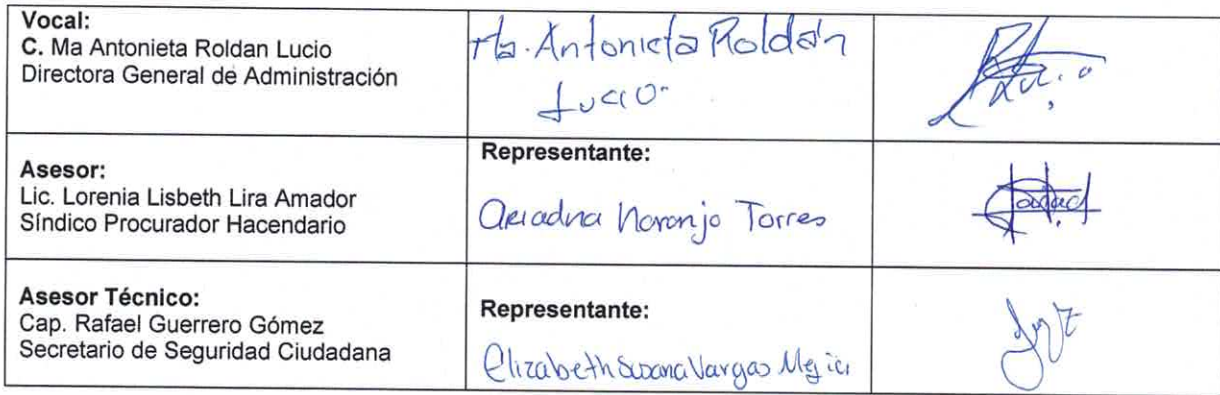 Vocal:
C. Ma Antonieta Roldan Lucio
Directora General de Administración
Ma. Antonieta Roldán
Lucio.
Asesor:
Lic. Lorenia Lisbeth Lira Amador
Síndico Procurador Hacendario
Representante:
Ariadna Naranjo Torres
Asesor Técnico:
Cap. Rafael Guerrero Gómez
Secretario de Seguridad Ciudadana
Representante:
Elizabeth Susana Vargas Mejia